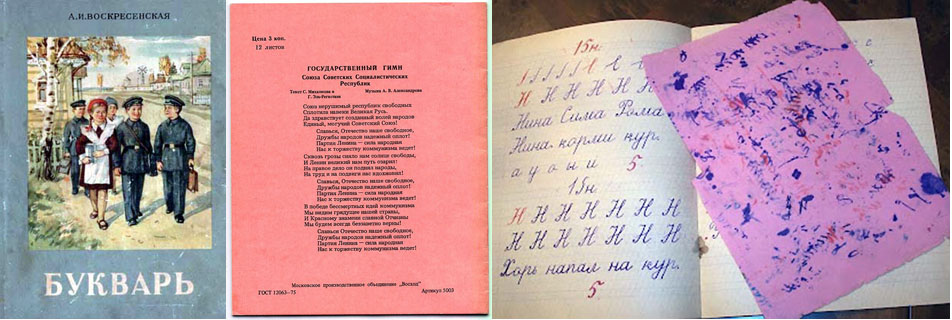 А.И.ВОСКРЕСЕНСКАЯ
БУКВАРЬ
Цена 3 коп.
12 листов
ГОСУДАРСТВЕННЫЙ ГИМН
Союза Советских Социалистических
Республик
Текст С. Михалкова и
Г. Эль-Регистана
Музыка А. В. Александрова
Союз нерушимый республик свободных
Сплотила навеки Великая Русь.
Да здравствует созданный волей народов
Единый, могучий Советский Союз!
Славься, Отечество наше свободное,
Дружбы народов надежный оплот!
Партия Ленина — сила народная
Нас к торжеству коммунизма ведет!
Сквозь грозы сияло нам солнце свободы,
И Ленин великий нам путь озарил:
На правое дело он поднял народы,
На труд и на подвиги нас вдохновил!
Славься, Отечество наше свободное,
Дружбы народов надежный оплот!
Партия Ленина — сила народная
Нас к торжеству коммунизма ведет!
В победе бессмертных идей коммунизма
Мы видим грядущее нашей страны,
И Красному знамени славной Отчизны
Мы будем всегда беззаветно верны!
Славься Отечество наше свободное,
Дружбы народов надежный оплот!
Партия Ленина — сила народная
Нас к торжеству коммунизма ведет!
Московское производственное объединение „Восход"
ГОСТ 12063—75
Артикул 5003
15н.
Н Н Н Н Н Н
Нина Сима Рома
Нина корми кур.
а у о ы и 5
15н.
Н Н Н Н Н Н Н
Н Н Н Н Н Н Н
Хорь напал на кур.
5